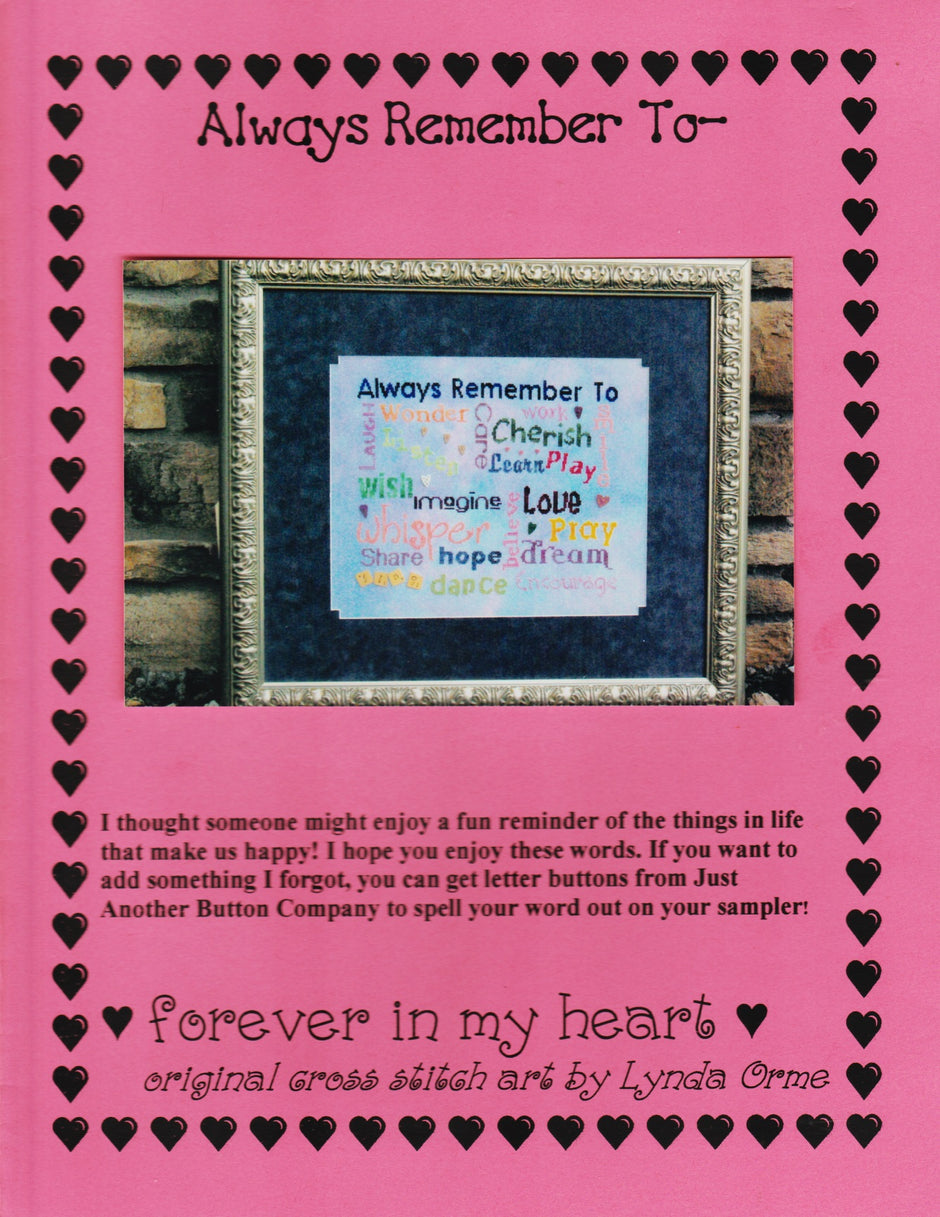 Always Remember To-
Always Remember To
LAUGH
Wonder
Care
work
Cherish
Listen
Learn
Play
wish
imagine
believe
Love
whisper
Pray
Share
hope
dream
dance
Encourage
I thought someone might enjoy a fun reminder of the things in life
that make us happy! I hope you enjoy these words. If you want to
add something I forgot, you can get letter buttons from Just
Another Button Company to spell your word out on your sampler!
forever in my heart
original cross stitch art by Lynda Orme